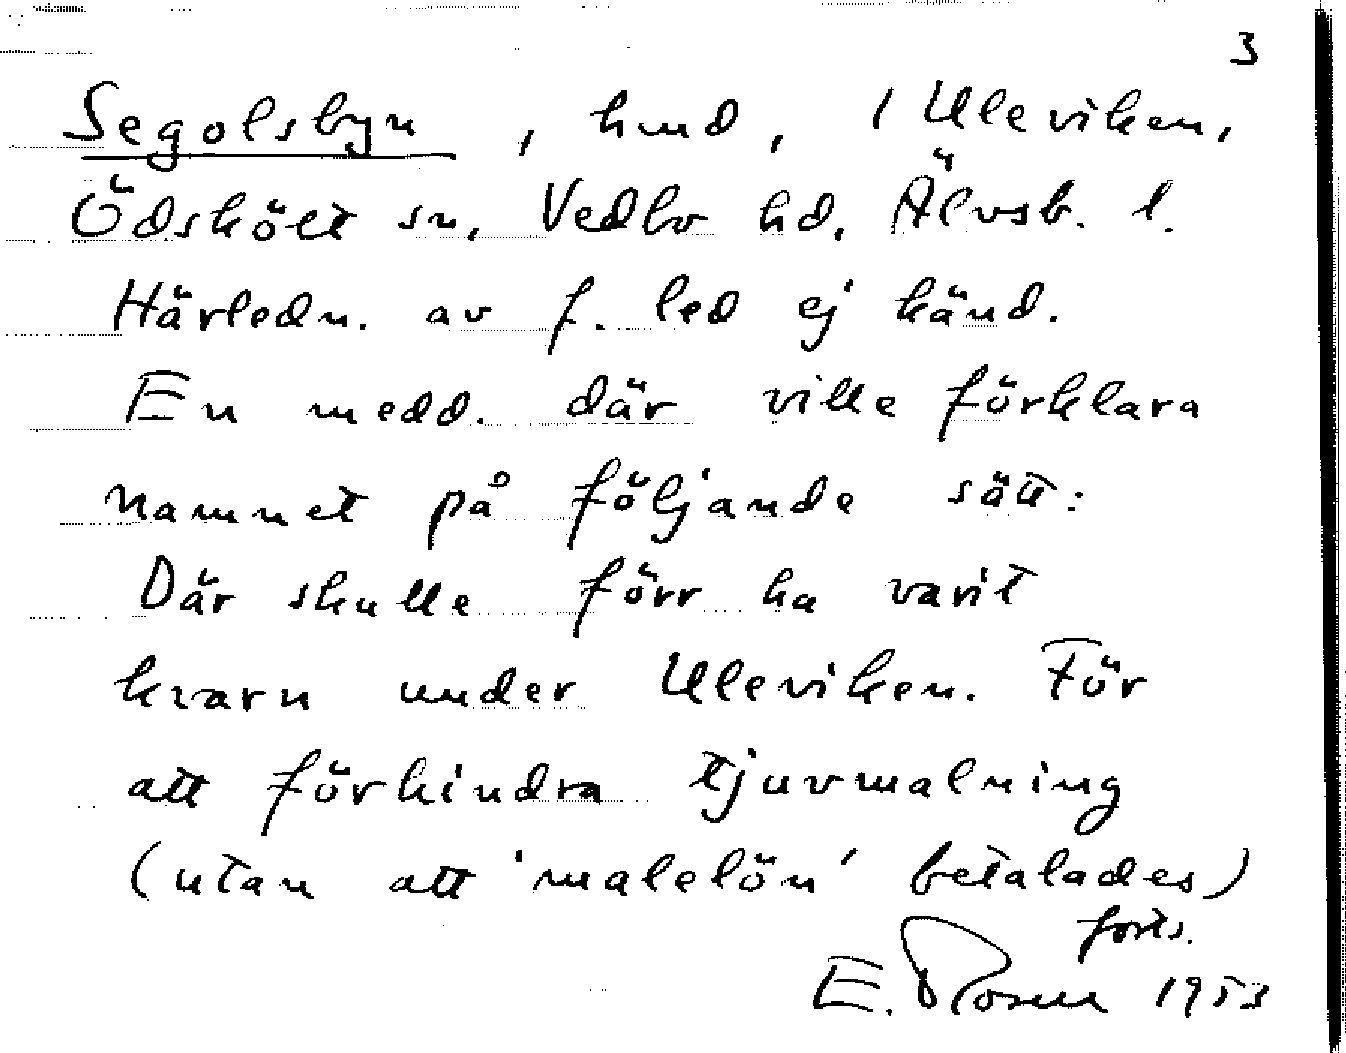 3
Segolsbyn, hmd, i Uleviken,
Ödskölt sn, Vedbo hd, Älvsb. l.
Härledn. av f. led ej känd.
En medd. där ville förklara
namnet på följande sätt:
Där skulle förr ha varit
kvarn under Uleviken. För
att förhindra tjuvmalning
(utan att 'malelön' betalades)
forts.
E. Rosell 1953